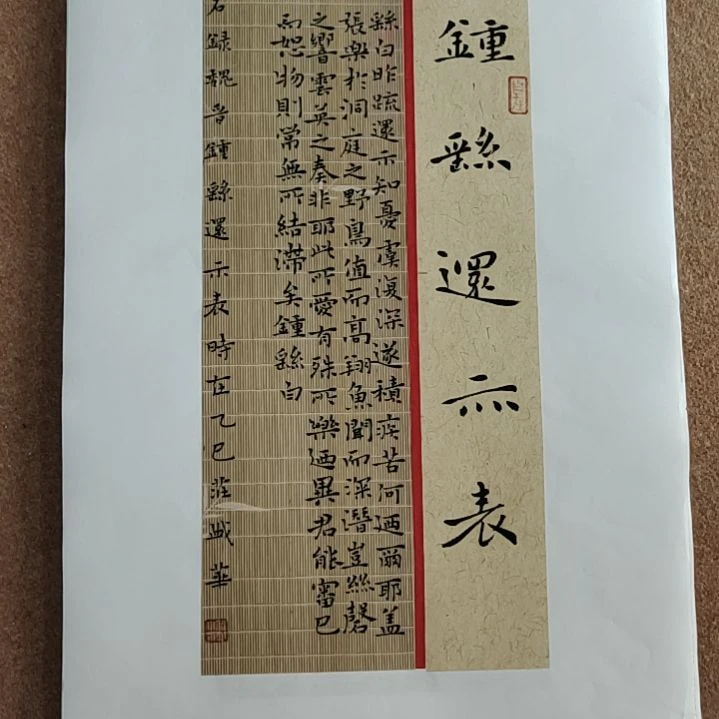 鍾繇還示表
繇白昨疏還示知憂虞復深遂積疾苦何迺爾耶盖
張樂於洞庭之野鳥值而高翔魚聞而深潛豈絲磬
之響雲英之奏非耶此所愛有殊所樂迺異君能審己
而恕物則常無所結滯矣鍾繇白
右錄魏晉鍾繇還示表時在乙巳莊盛華